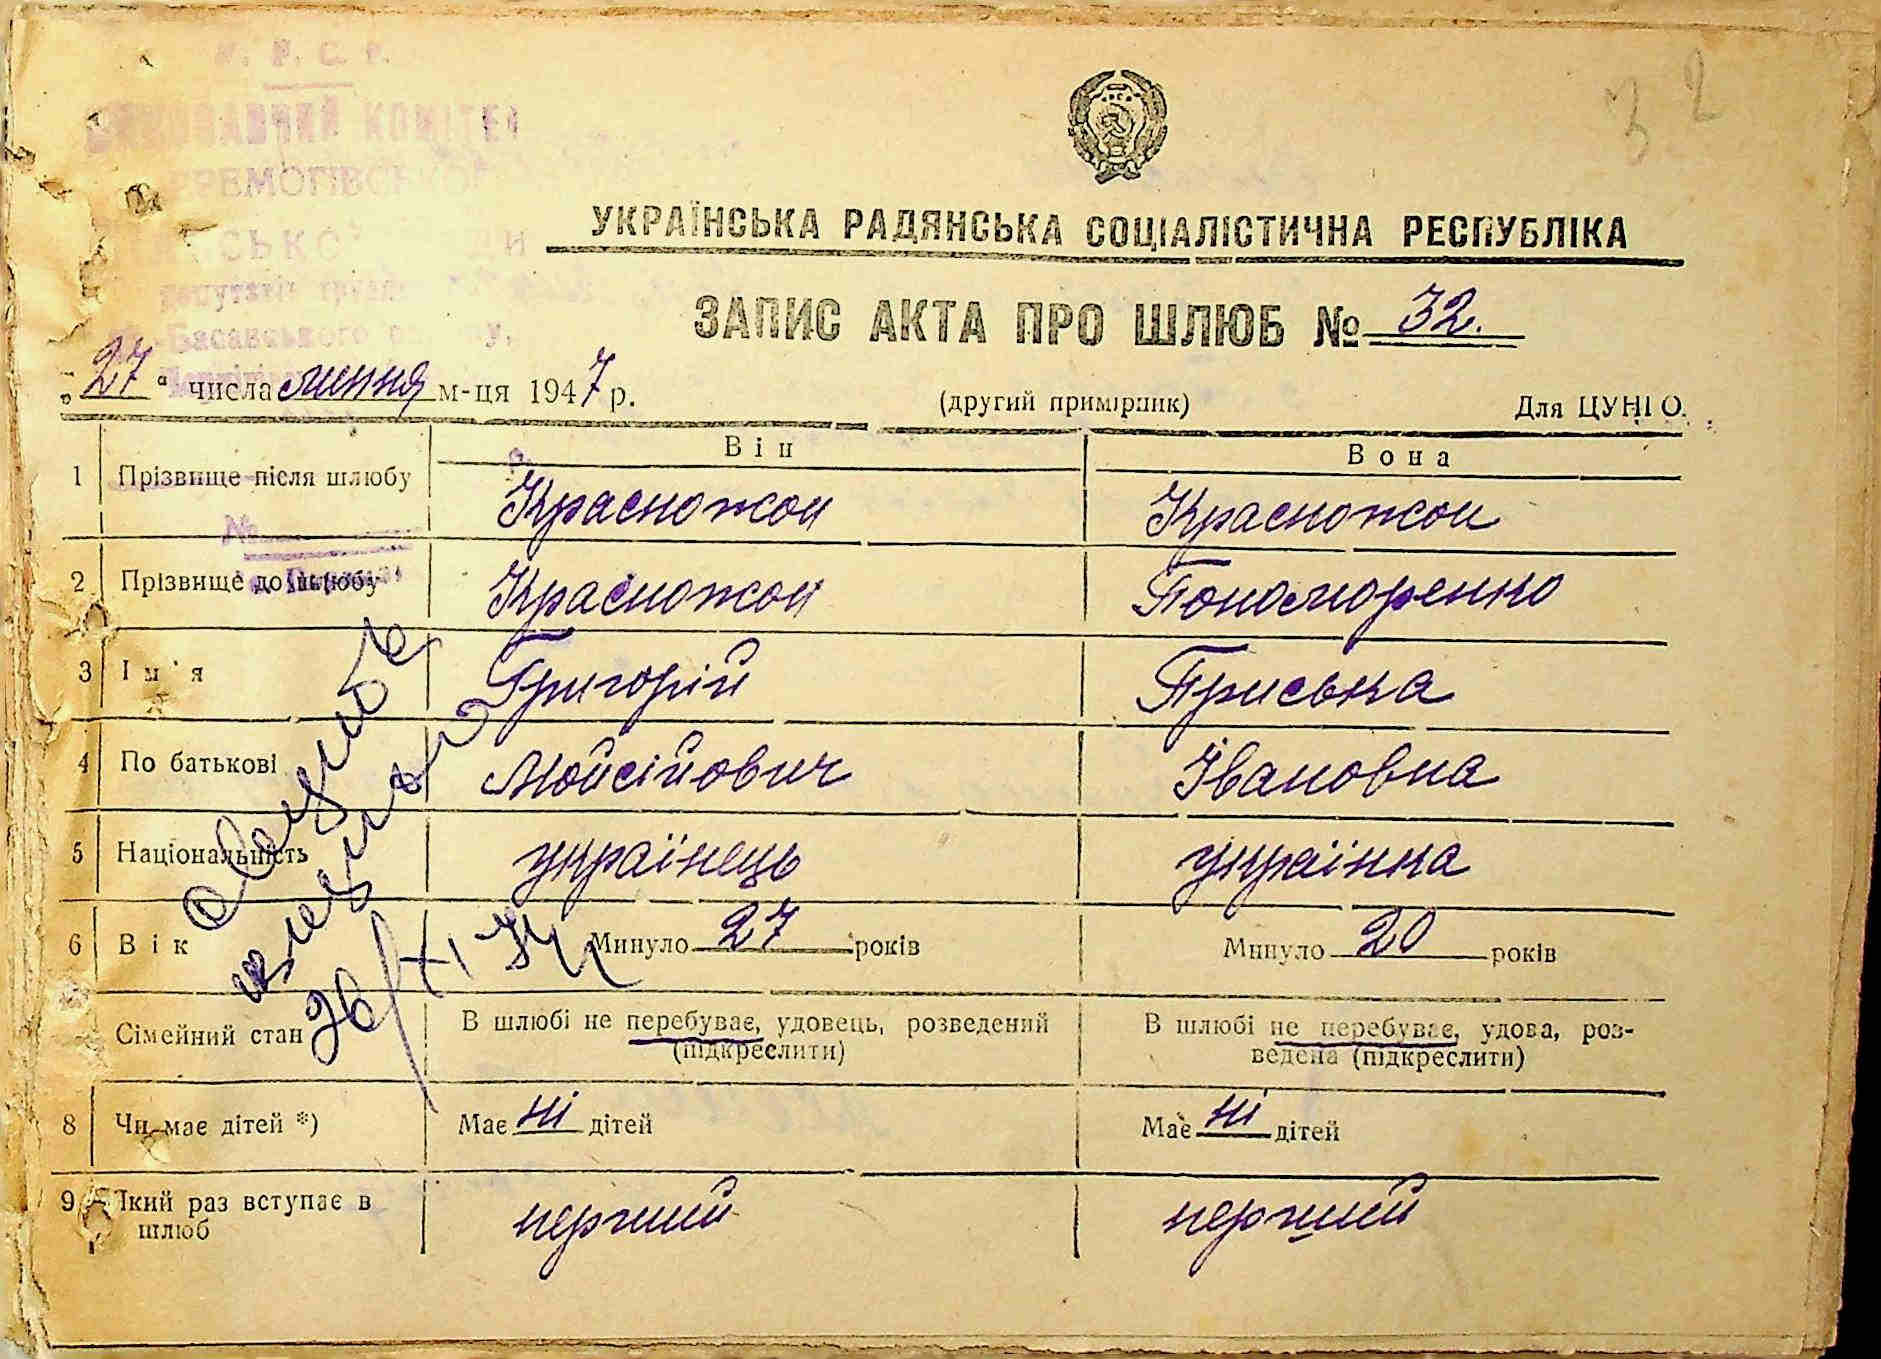 У. Р. С. Р.
ВИКОНАВЧИЙ КОМІТЕТ
32
УКРАЇНСЬКА РАДЯНСЬКА СОЦІАЛІСТИЧНА РЕСПУБЛІКА
ЗАПИС АКТА ПРО ШЛЮБ № 32.
„27“ числа липня м-ця 1947 р. (другий примірник) Для ЦУНГО.
Він Вона
1 Прізвище після шлюбу Красножон Красножон
№
2 Прізвище до шлюбу Красножон Пономоренко
3 Ім'я Григорій Приська
4 По батькові Мойсійович Івановна
5 Національність українець українка
6 Вік Минуло 27 років Минуло 20 років
26/XI 74
Сімейний стан В шлюбі не перебуває, удовець, розведений (підкреслити) В шлюбі не перебуває, удова, роз-
ведена (підкреслити)
8 Чи має дітей *) Має ні дітей Має ні дітей
9 Який раз вступає в шлюб перший перший